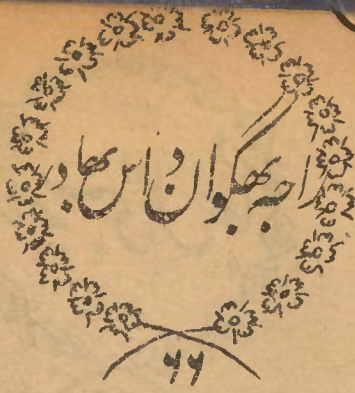 راجہ بھگوان داس بہادر
۶۶